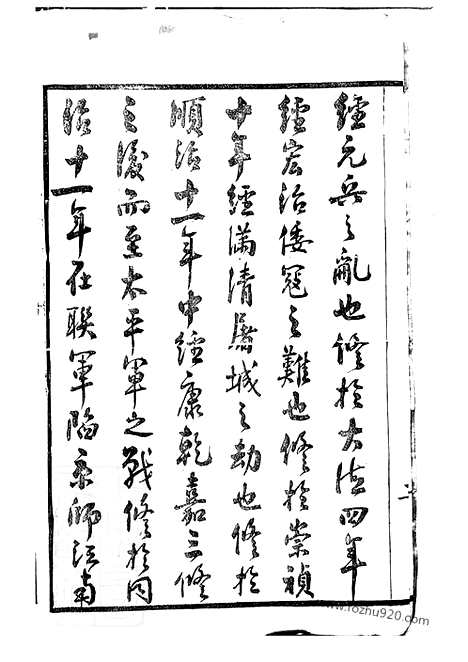 經元兵之亂也修於大德四年
經宏治倭寇之難也修於崇禎
十年經滿清屠城之劫也修於
順治十一年中經康乾嘉三修
之後而至太平軍之戰修於同
治十一年在聯軍陷京師江南
二
www.rozhu920.com